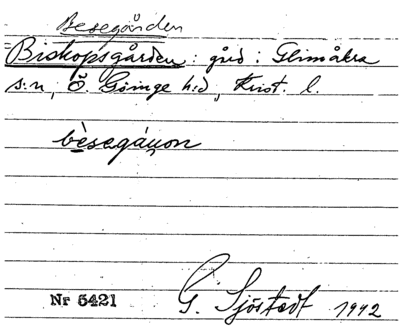 Besegården
Biskopsgården: gård i Glimåkra
s:n, Ö. Göinge h:d, Krist. l.
bèsegáṇon
Nr 5421
G. Sjöstedt 1942